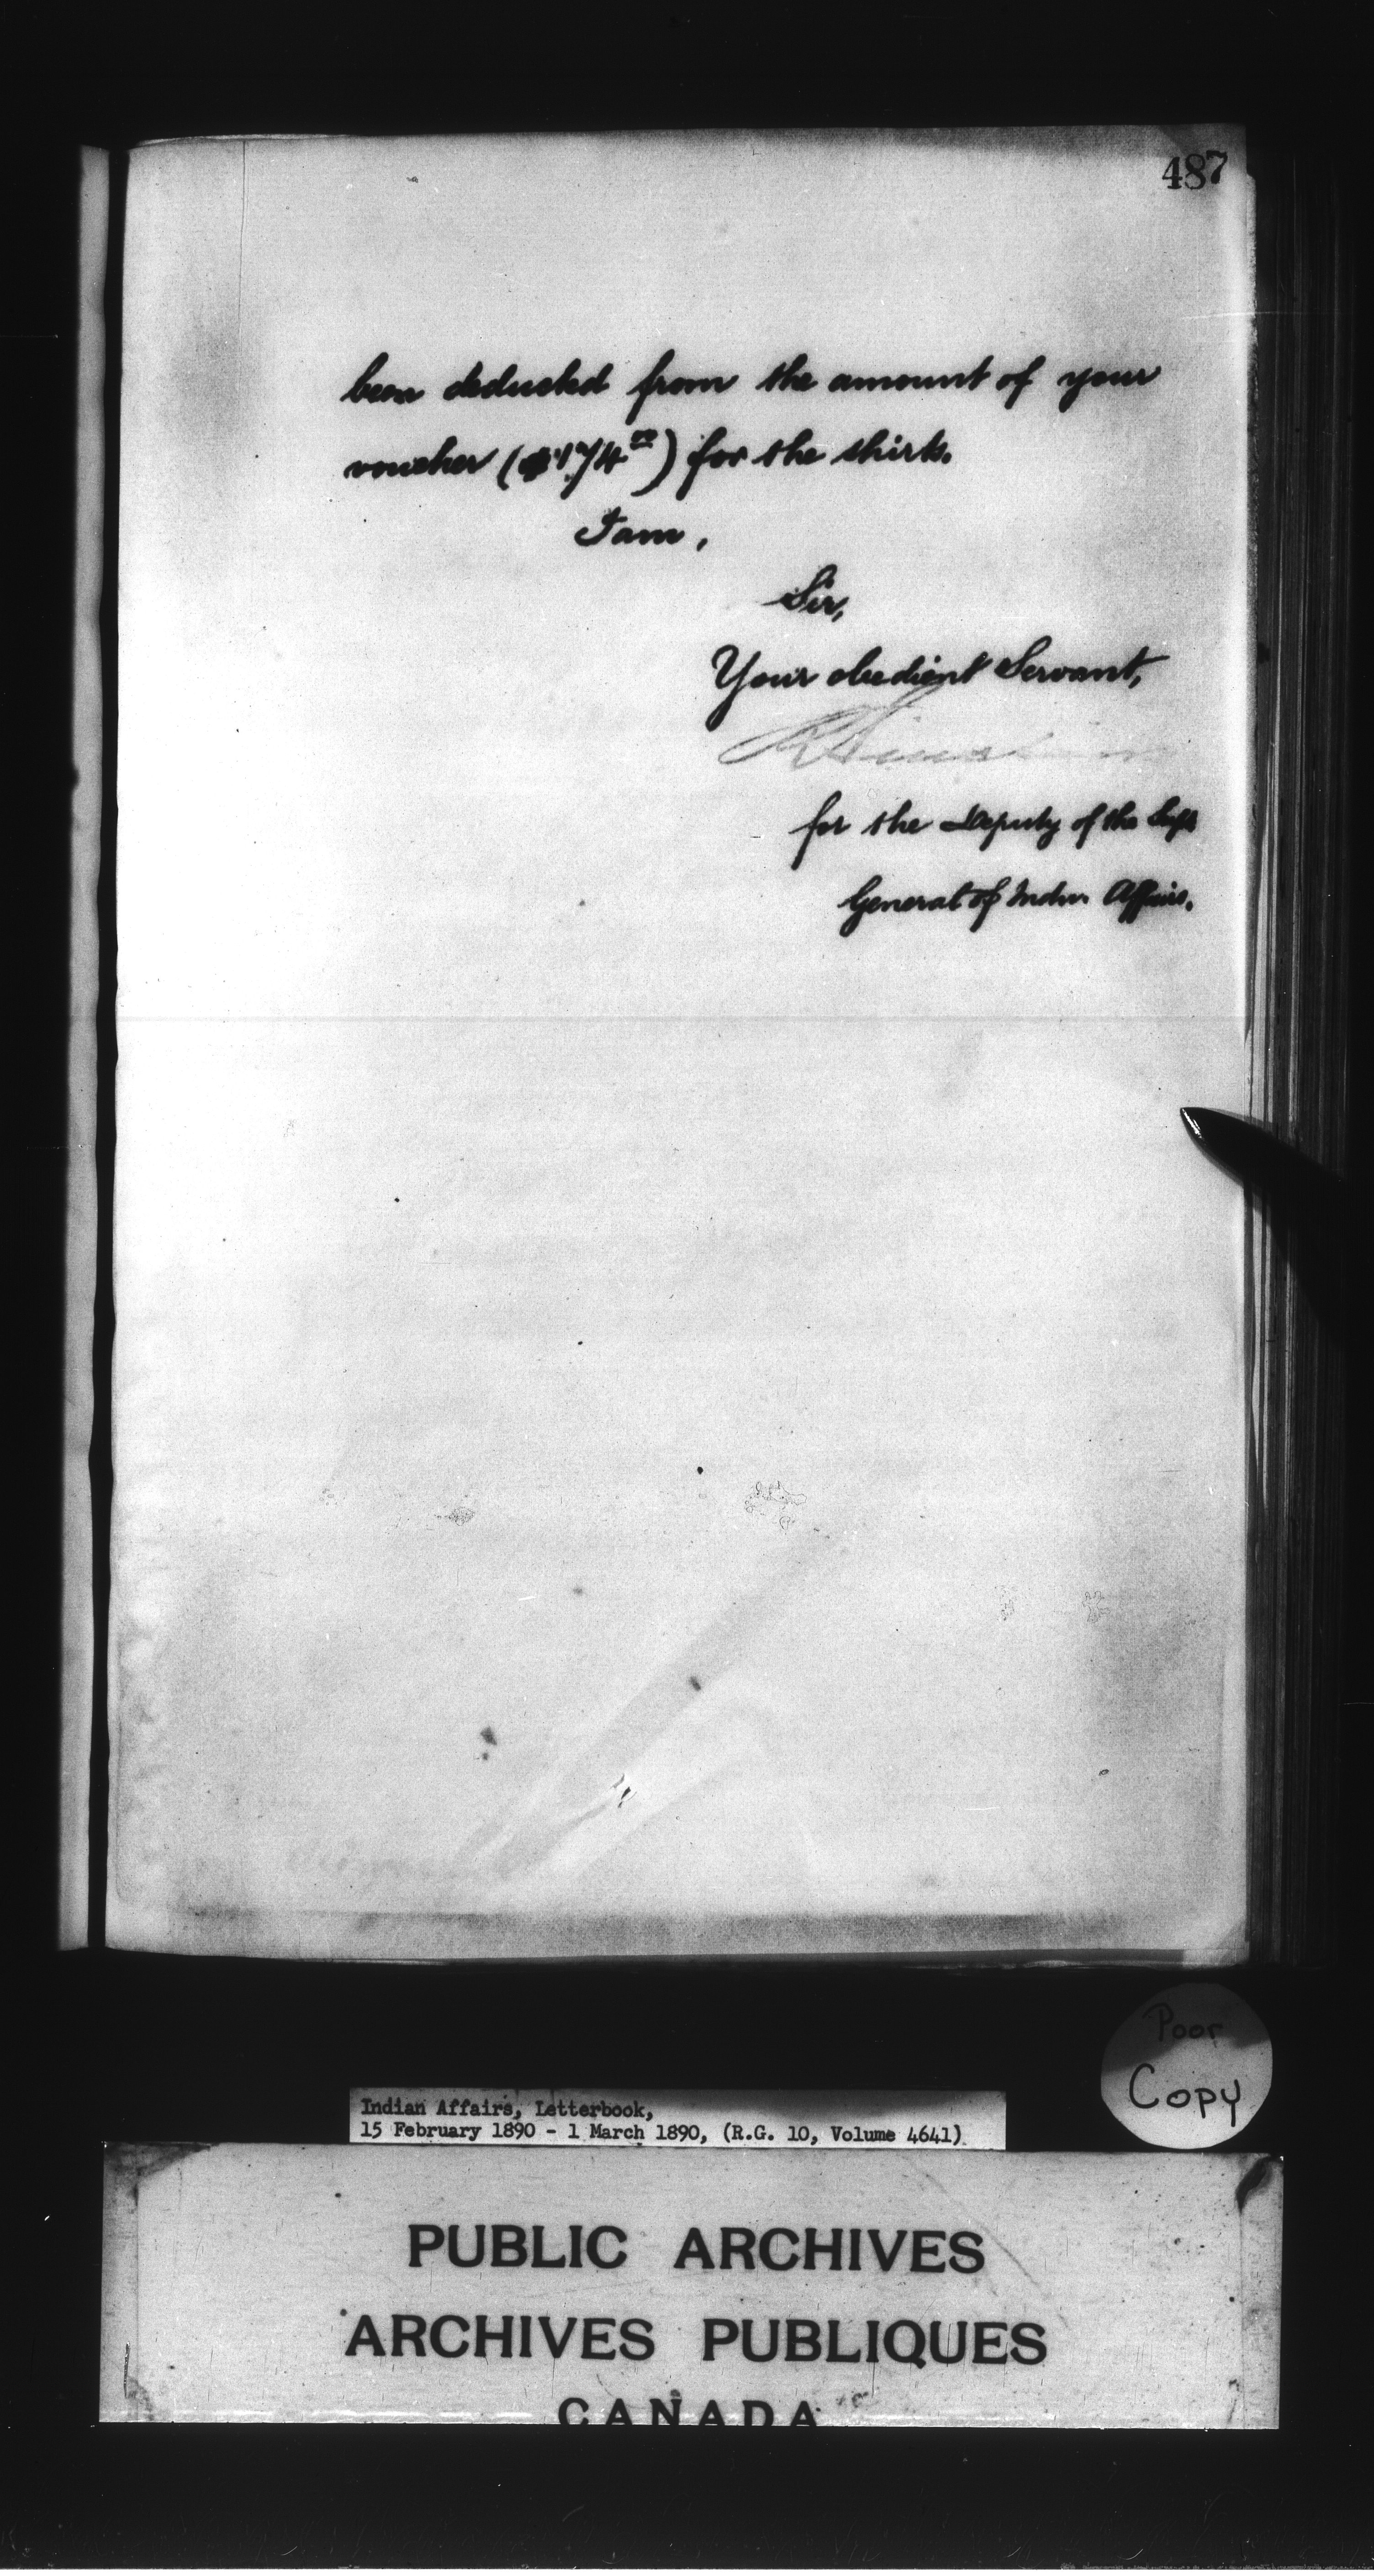 487
been deducted from the amount of your
voucher ($174.00) for the shirts.
I am,
Sir,
Your obedient Servant,
for the Deputy of the Supt
General of Indn. Affairs.
Poor
Copy
Indian Affairs, Letterbook,
15 February 1890 - 1 March 1890, (R.G. 10, Volume 4641)
PUBLIC ARCHIVES
ARCHIVES PUBLIQUES
CANADA